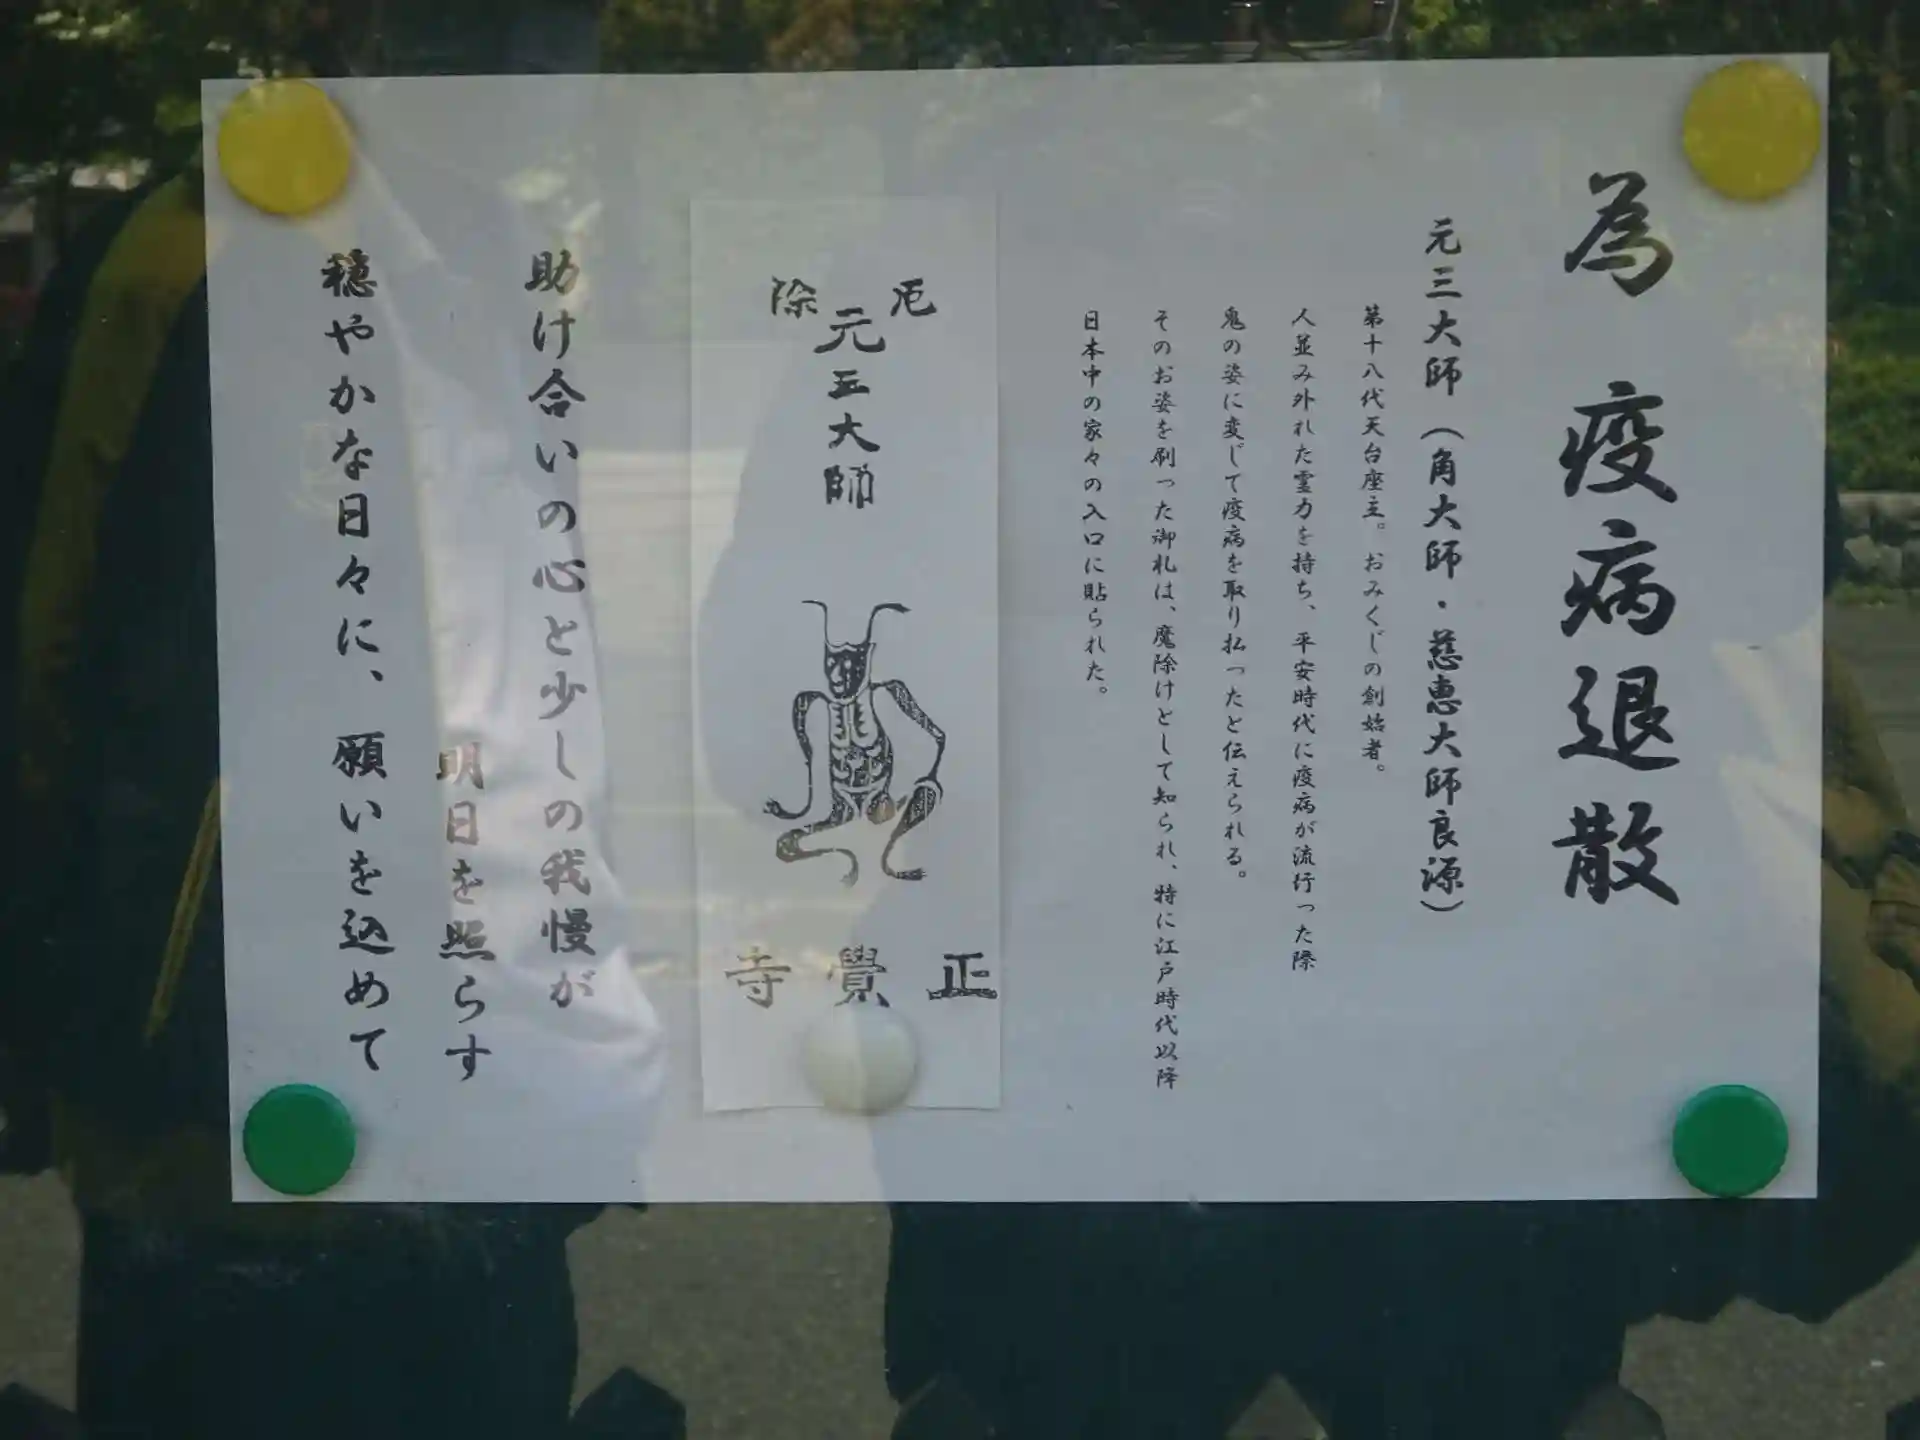 為 疫病退散
元三大師（角大師・慈恵大師良源）
第十八代天台座主。おみくじの創始者。
人並み外れた霊力を持ち、平安時代に疫病が流行った際
鬼の姿に変じて疫病を取り払ったと伝えられる。
そのお姿を刷った御札は、魔除けとして知られ、特に江戸時代以降
日本中の家々の入口に貼られた。
厄除
元三大師
正覺寺
助け合いの心と少しの我慢が
明日を照らす
穏やかな日々に、願いを込めて